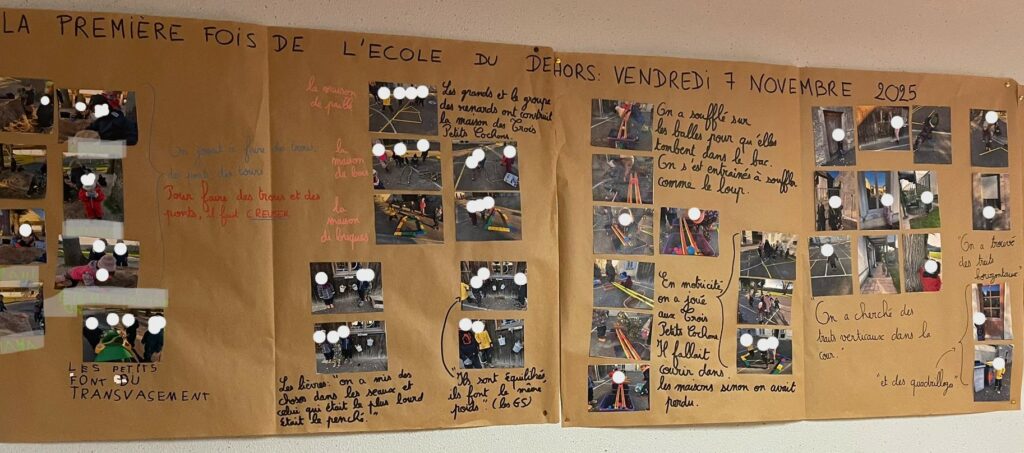 LA PREMIÈRE FOIS DE L'ECOLE DU DEHORS: VENDREDI 7 NOVEMBRE 2025
On jouait à faire des trous,
Pour faire des trous et des
ponts, il faut CREUSER
LES PETITS
FONT DU
TRANSVASEMENT
la maison
de paille
la
maison
de bois
la
maison
di briques
Les grands et le groupe
des renards ont construit
la maison des Trois
Petits Cochons
Les lièvres: "on a mis des
choses dans les seaux et
celui qui était le plus lourd
était le penché."
"Ils sont équilibrés,
ils font le même
poids". (les GS)
On a soufflé sur
les balles pour qu'elles
tombent dans le bac.
On s'est entraînés à souffler
comme le loup.
En motricité,
on a joué
aux Trois
Petits Cochons
Il fallait
courir dans
les maisons sinon on avait
perdu.
"On a trouvé
des traits
horizontaux"
On a cherché des
traits verticaux dans la
cour."
"et des quadrillages"